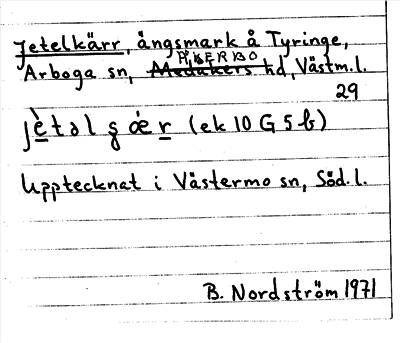 Jetelkärr, ängsmark å Tyringe,
ÅKERBO
Arboga sn, Medåkers hd, Västm.l.
29
jètəl ʂæ̀r (ek 10 G 5 b)
Upptecknat i Västermo sn, Söd. l.
B. Nordström 1971